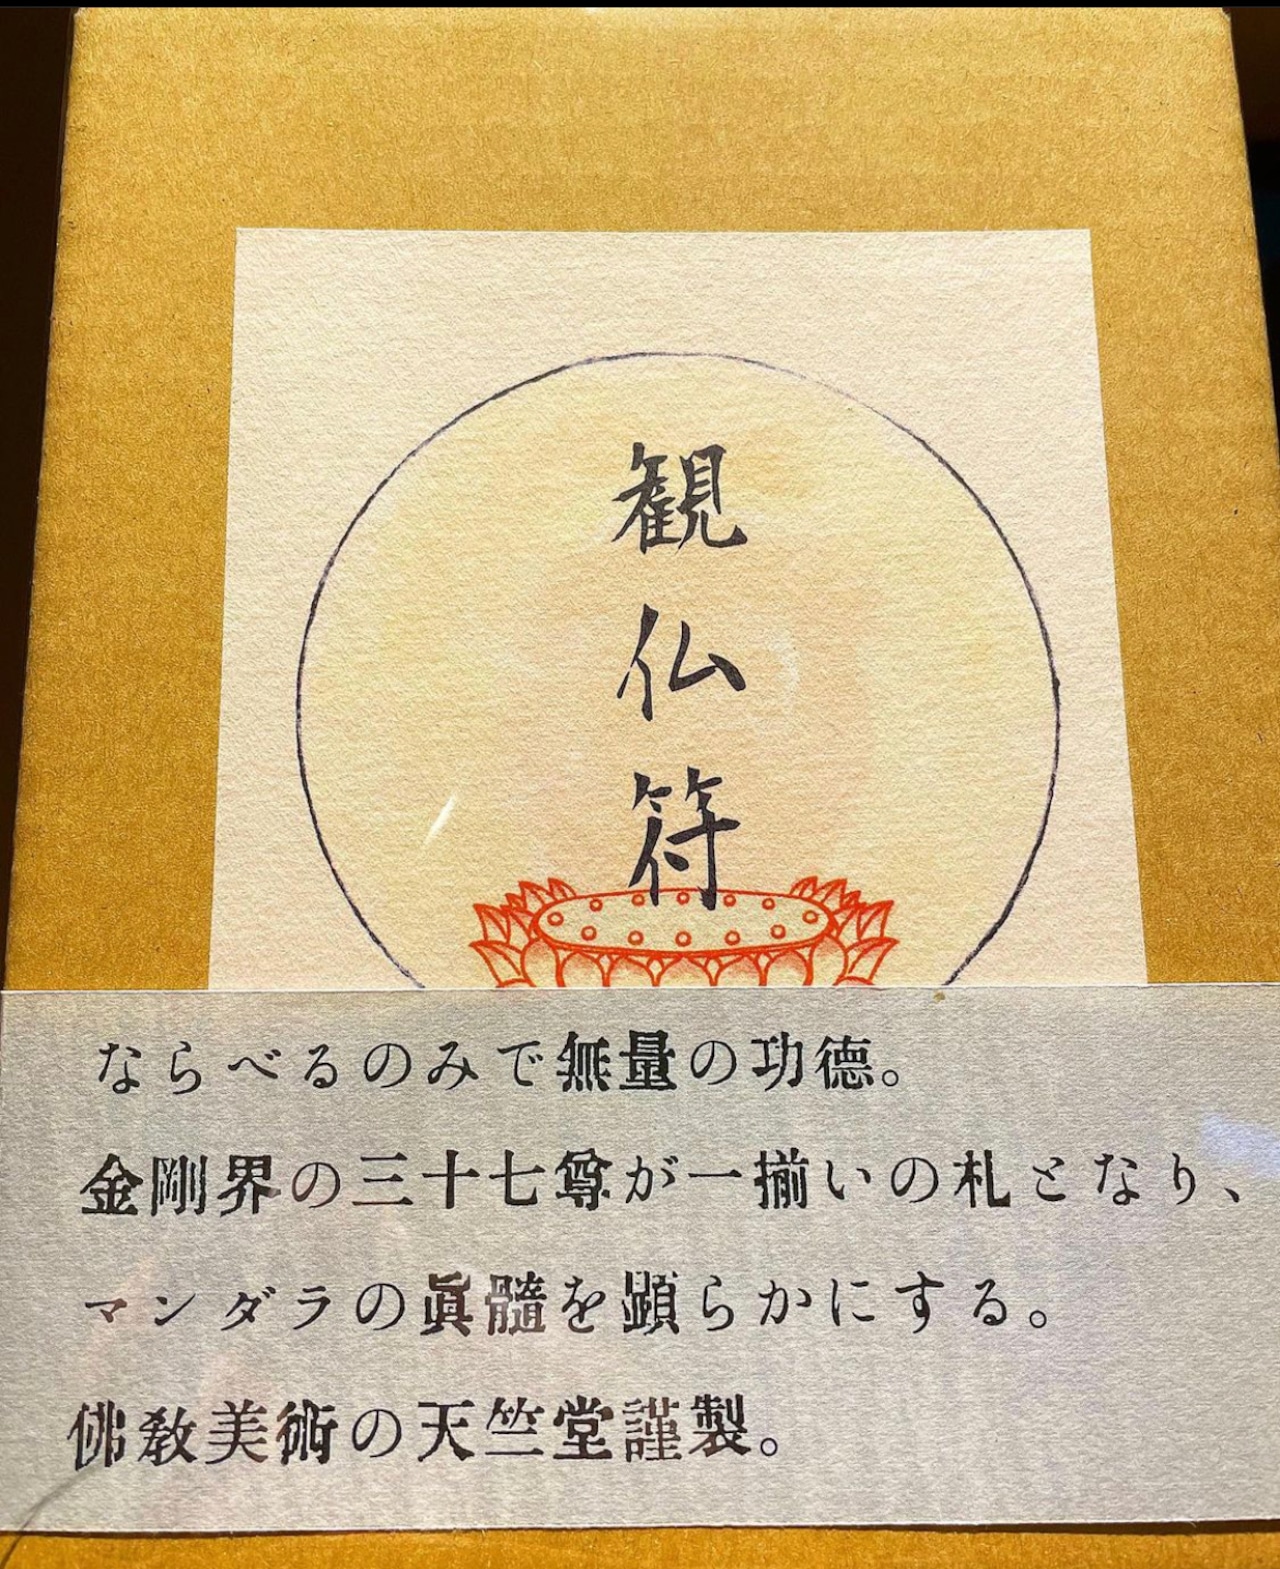 観仏符
ならべるのみで無量の功徳。
金剛界の三十七尊が一揃いの札となり、
マンダラの眞髓を顕らかにする。
佛教美術の天竺堂謹製。